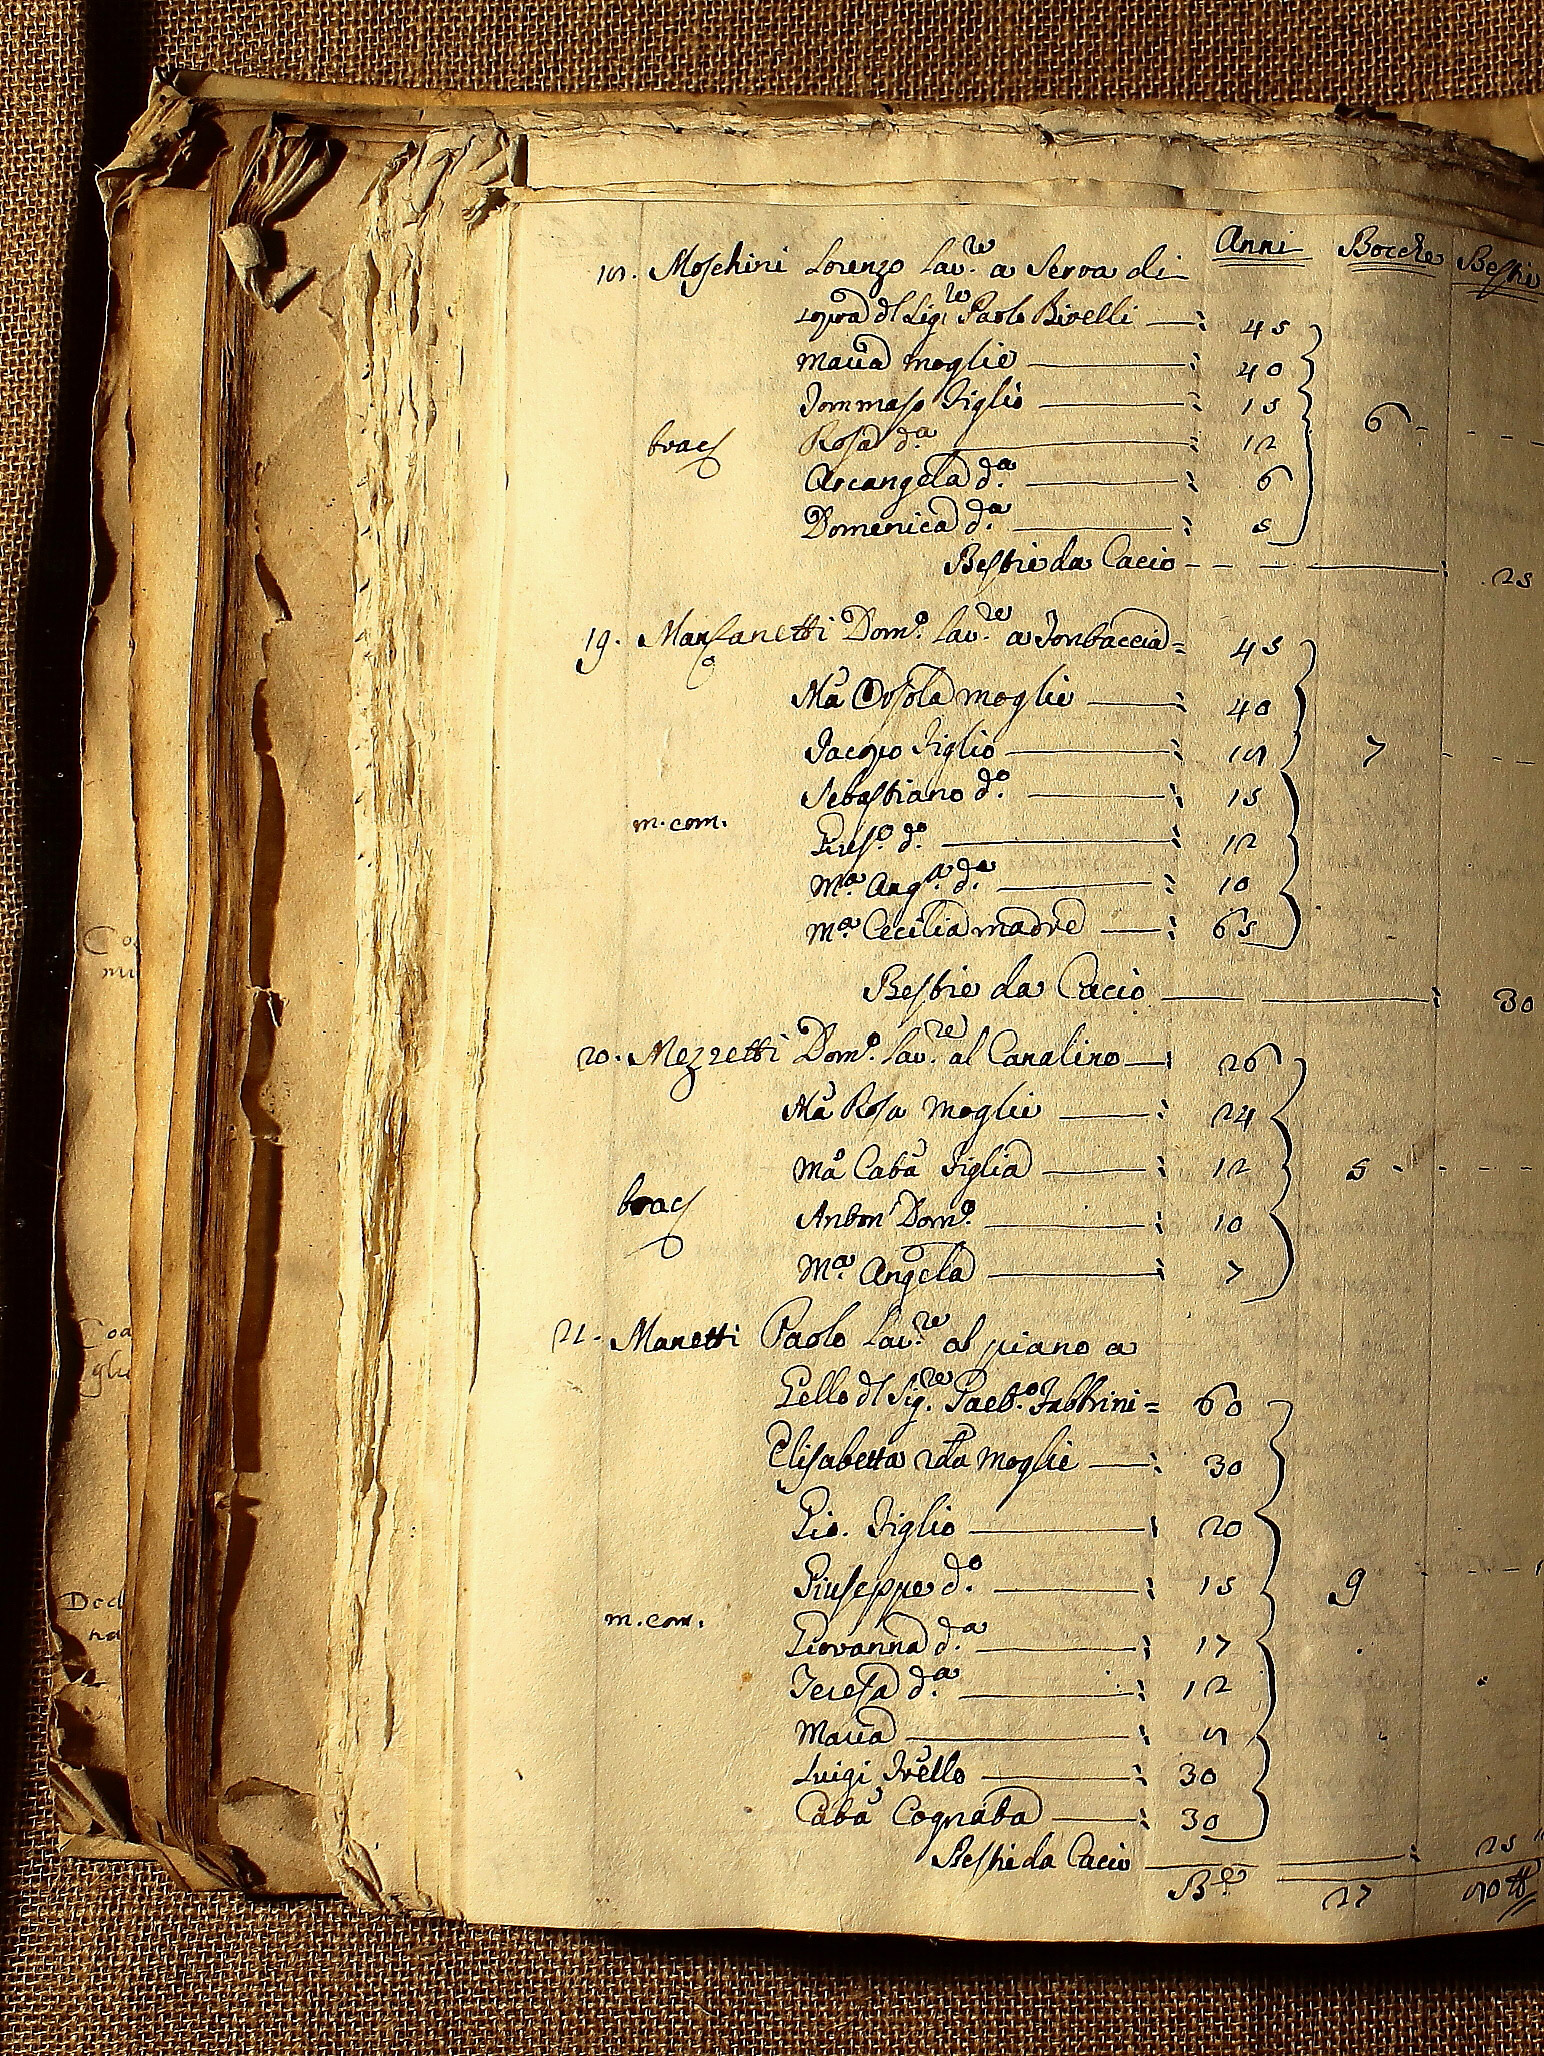 Anni Bocche Bestie
18. Moschini Lorenzo Lav.re a Serra di
sopra dl Sig.re Paolo Rivelli 45
Maria moglie 40
Tommaso figlio 15
brac Rosa d.a 12 6
Arcangela d.a 6
Domenica d.a 5
Bestie da Cacio 25
19. Manzanetti Dom.o Lav.re a Tombaccia = 45
Ma Orsola moglie 40
Jacopo figlio 18 7
Sebastiano d.o 15
m. com. Gius.e d.o 12
M.a Ang.a d.a 10
M.a Cecilia madre 65
Bestie da Cacio 30
20. Mezzetti Dom.o Lav.re al Canalino 26
Ma Rosa Moglie 24
Ma Cata figlia 12 5
brac Anton Dom.o 10
M.a Angela 7
21. Manetti Paolo Lav.re al piano a
Gello dl Sig.re Gaet.o Fabbrini = 60
Elisabetta 2da Moglie 30
Gio. figlio 20
Giuseppe d.o 15 9
m. com. Giovanna d.a 17
Teresa d.a 12
Maria 8
Luigi Frello 30
Cata Cognata 30
Bestie da Cacio 25
27 80